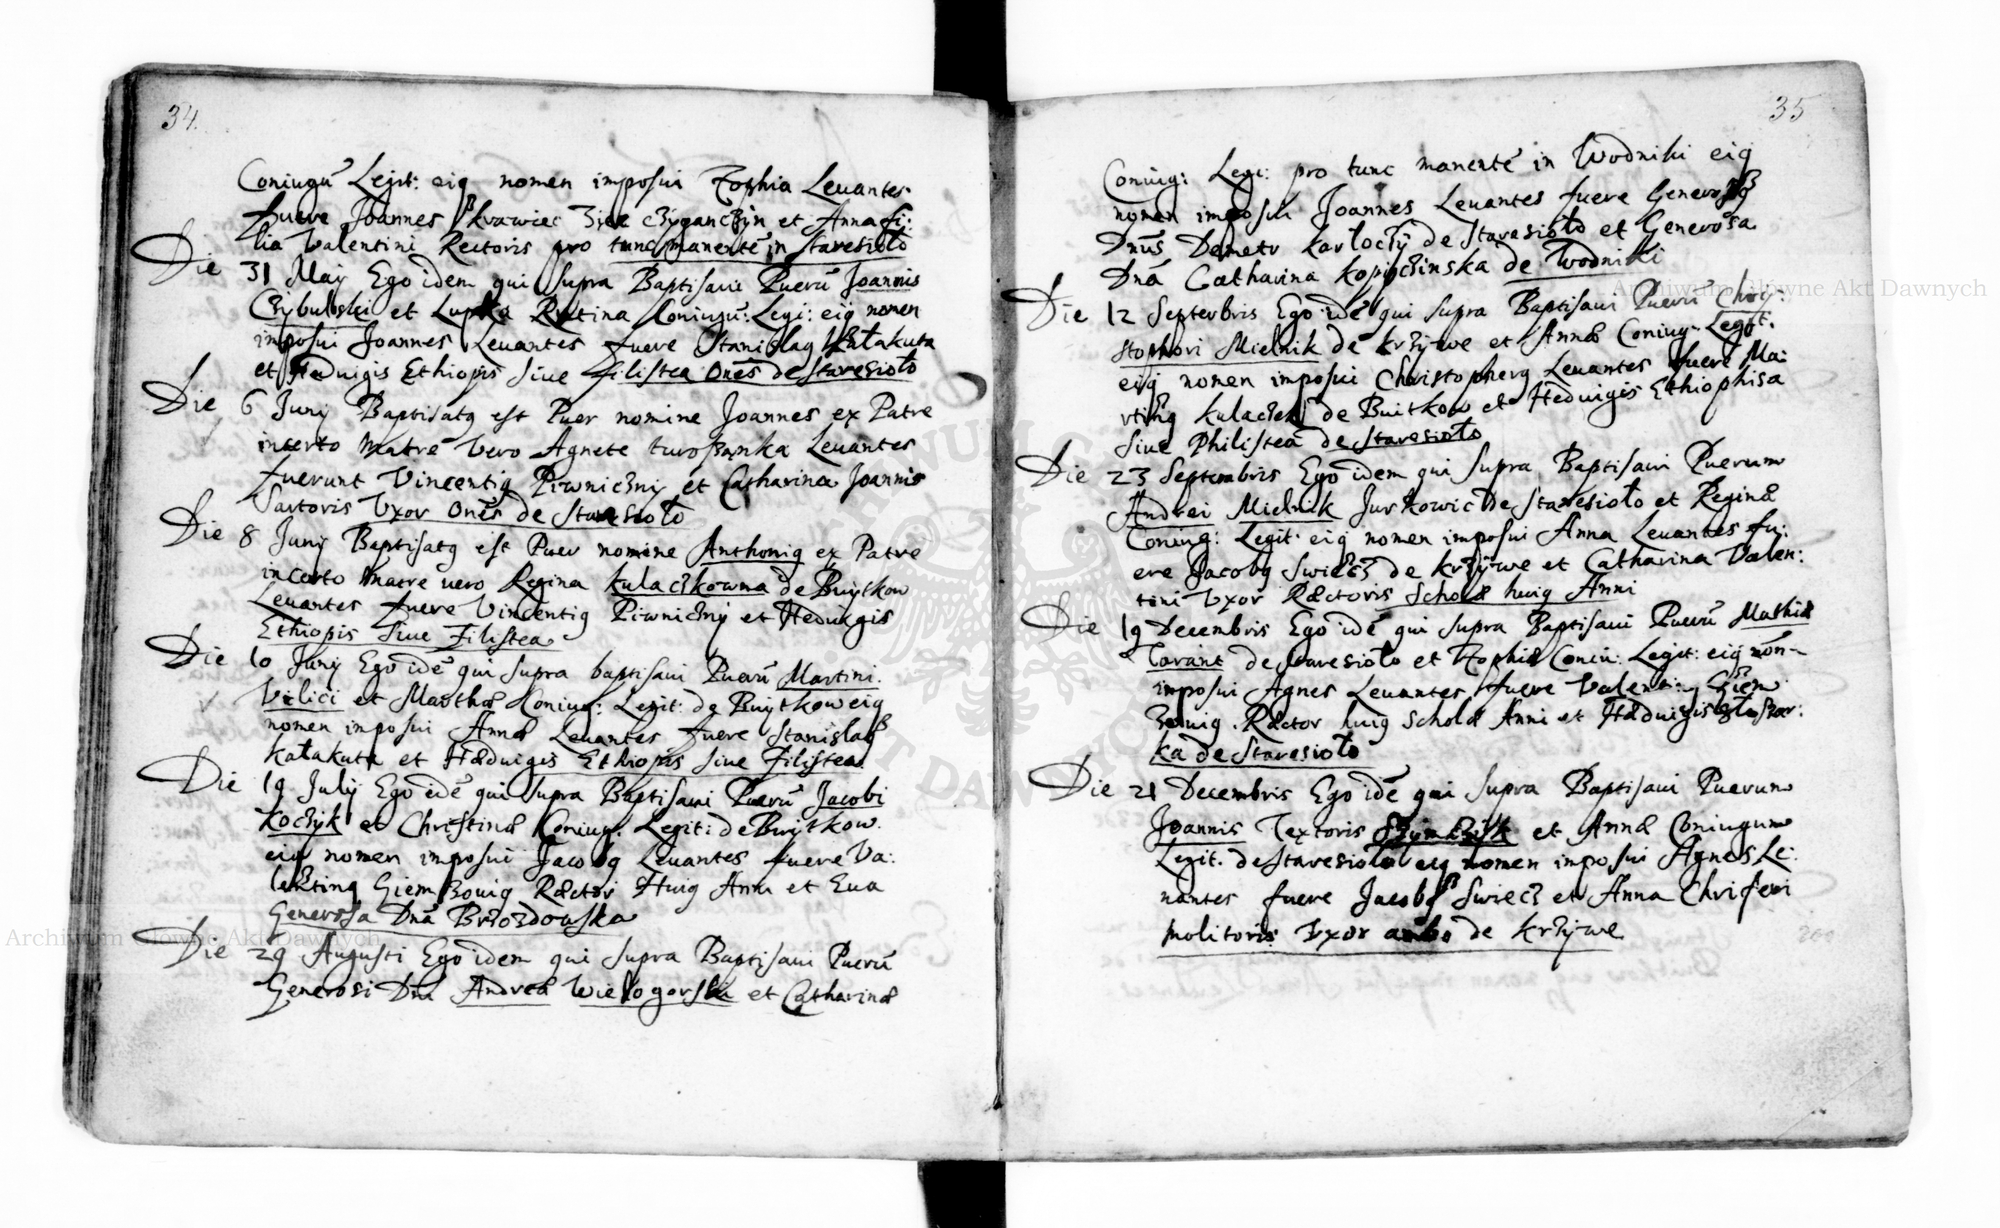 34.
Coniugū Legit: eiq nomen imposui Zophia Leuantes
fuere Joannes krawiec et Anna fi:
lia Valentini Rectoris pro tunc manentē in Staresioło
Die 31 Maij Ego idem qui supra Baptisaui Puerū Joannis
et Coniugū: Legi: eiq nomen
imposui Joannes Leuantes fuere Stanislaq Katakuta
et Heduigis Ethiopis siue filistea Onēs de Staresioło
Die 6 Junij Baptisatq est Puer nomine Joannes ex Patre
incerto Matre vero Agnete Leuantes
fuerunt Vincentiq Piwniczny et Catharina Joannis
Sartoris Vxor Onēs de Staresioło
Die 8 Junij Baptisatq est Puer nomine Anthoniq ex Patre
incerto Matre uero Regina kulaczkowna de Buytkow
Leuantes fuere Vincentiq Piwniczny et Heduigis
Ethiopis siue Filistea
Die 10 Junij Ego idē qui supra baptisaui Puerū Martini
Velici et Marthæ Coniug: Legit: de Buytkow eiq
nomen imposui Anna Leuantes fuere Stanislaq
Katakuta et Hæduigis Ethiopis siue Filistea
Die 19 July Ego idē qui supra Baptisaui Puerū Jacobi
Koczyk et Christinæ Coniug. Legit: de Buytkow.
eiq nomen imposui Jacobq Leuantes fuere Va:
lentinq Giem Ræctor Huiq Anni et Eua
Generosa Dnā Brzozdowska
Die 29 Augusti Ego idem qui supra Baptisaui Puerū
Generosi Dnī Andreæ Wielogorski et Catharinæ
35
Coniug: Legi: pro tunc manentē in Wodniki eiq
nomen imposui Joannes Leuantes fuere Generosq
Dnūs Demetr karłoczy de Staresioło et Generosa
Dnā Catharina kopiczinska de Wodniki
Die 12 Septebris Ego idē qui supra Baptisaui Puerū Chry:
stophori Mielnik de krzywe et Annæ Coniug. Legit.
eiq nomen imposui Christopherq Leuantes fuere Ma:
rtinq de Buitkow et Heduigis Ethiophisa
siue Philistea de Staresioło
Die 23 Septembris Ego idem qui supra Baptisaui Puerum
Andrei Mielnik Jurkowic de Staresioło et Reginæ
Coniug: Legit: eiq nomen imposui Anna Leuantes fu:
ere Jacobq Swiecz de krzywe et Catharina Valen:
tini Vxor Ræctoris Scholæ huiq Anni
Die 19 Decembris Ego idē qui supra Baptisaui Puerū Mathiæ
de Staresioło et Zophiæ Coniu: Legit: eiq nōn
imposui Agnes Leuantes fuere Valenti: Giem
Rector huiq Scholæ Anni et Hæduigis
ka de Staresioło
Die 21 Decembris Ego idē qui supra Baptisaui Puerum
Joannis Textoris et Annæ Coniugum
Legit. de Staresioło eiq nomen imposui Agnes Le:
nantes fuere Jacobq Swiecz et Anna
Molitoris Vxor ambo de krzywe
Archiwum Główne Akt Dawnych
Archiwum Główne Akt Dawnych